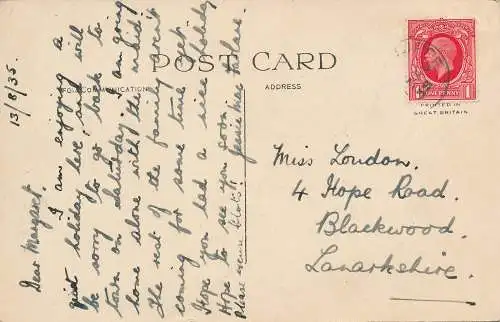 POST CARD
FOR COMMUNICATION
ADDRESS
ONE PENNY
PRINTED IN
GREAT BRITAIN
13/8/35.
Dear Margaret,
I am enjoying a
quiet holiday here and will
be sorry to go back to
town on Saturday. I am going
home alone with the maid.
The rest of the family aren't
coming for some time yet.
Hope you had a nice holiday
Hope to see you soon.
Jessie MacFarlane.
Please excuse blots!
Miss Loudon.
4 Hope Road.
Blackwood.
Lanarkshire.